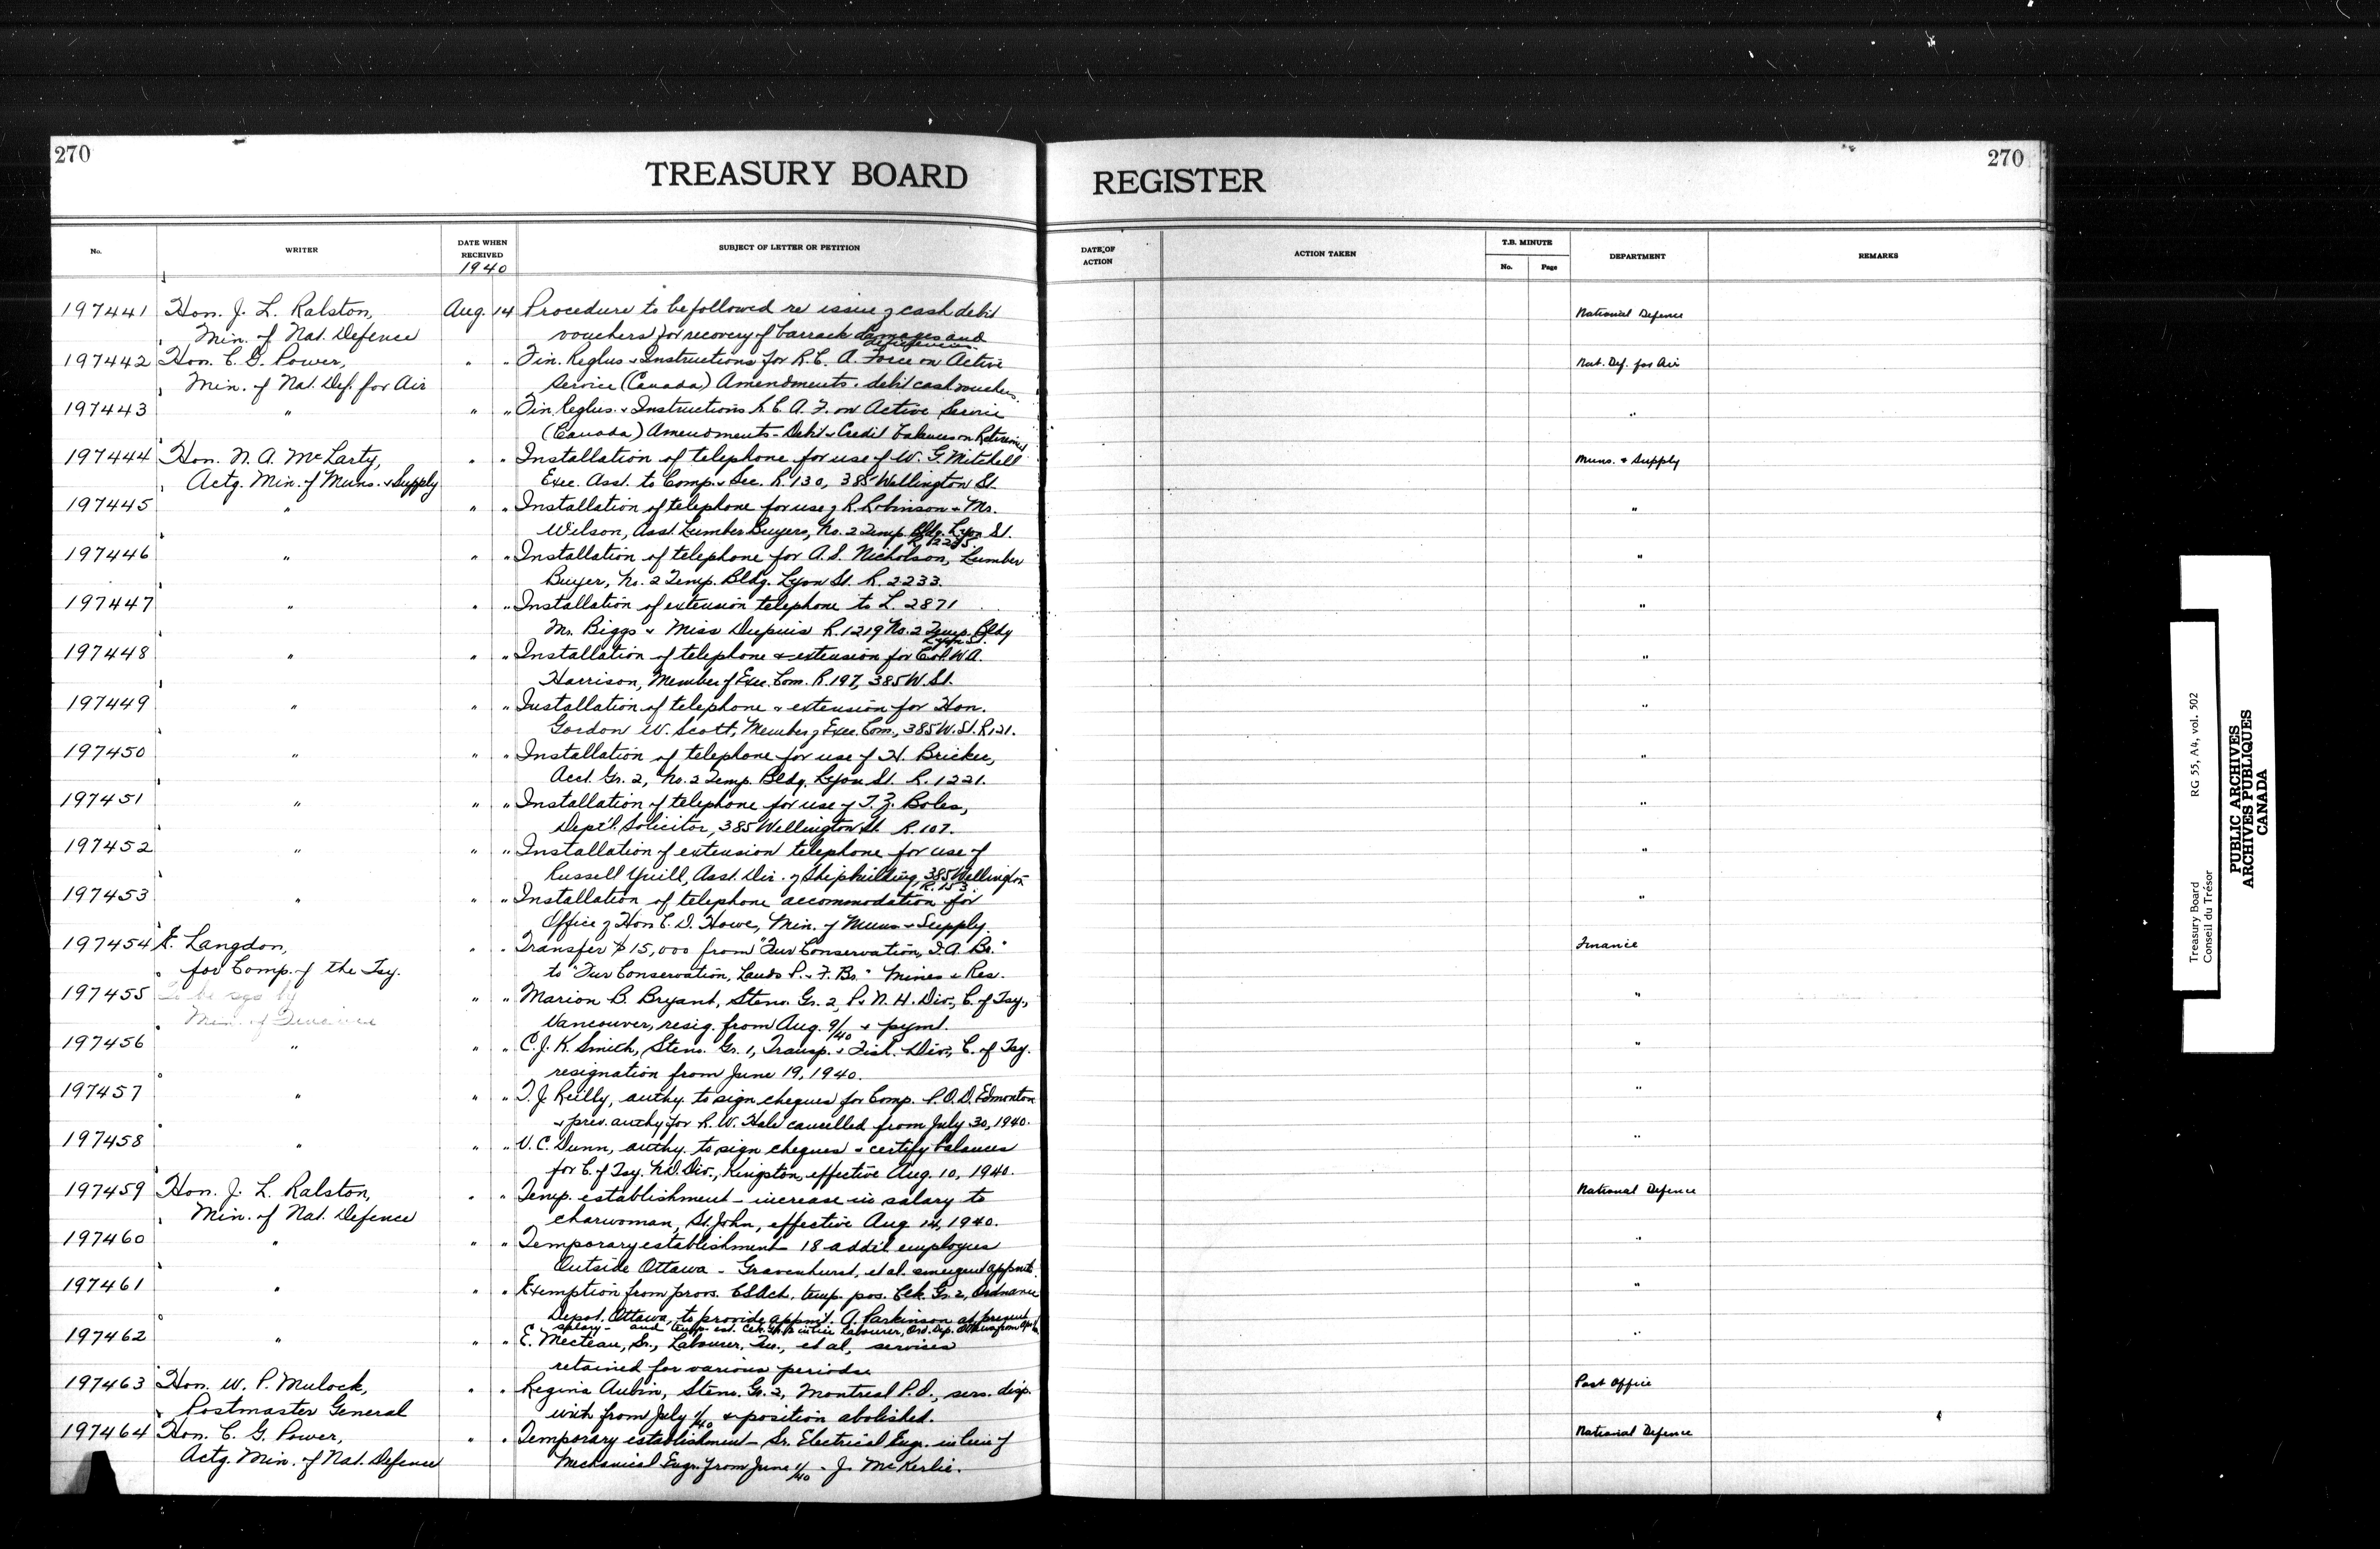 270
TREASURY BOARD
REGISTER
270
No.
WRITER
DATE WHEN RECEIVED
1940
SUBJECT OF LETTER OR PETITION
DATE OF ACTION
ACTION TAKEN
T.B. MINUTE
No.
Page
DEPARTMENT
REMARKS
197441 Hon. J. L. Ralston, Aug. 14 Procedure to be followed re issue of cash debit National Defence
Min. of Nat. Defence vouchers for recovery of barrack damages and deficiencies.
197442 Hon. C. G. Power, " " Fin. Reglns & Instructions for R.C.A. Force on Active Nat. Def. for Air
Min. of Nat. Def. for Air Service (Canada) Amendments. debit cash vouchers.
197443 " " " Fin. Reglns. & Instructions R.C.A.F. on Active Service "
(Canada) Amendments - Debit & Credit balances on
197444 Hon. N. A. McLarty, " " Installation of telephone for use of W. G. Mitchell Muns. & Supply
Actg. Min. of Muns. & Supply Exec. Asst. to Comp. & Sec. R. 130, 385 Wellington St.
197445 " " " Installation of telephone for use of R. Robinson & Mr. "
Wilson, Asst. Lumber Buyers, No. 2 Temp. Bldg. Lyon St.
197446 " " " Installation of telephone for A. S. Nicholson, Lumber "
Buyer, No. 2 Temp. Bldg. Lyon St. R. 2233.
197447 " " " Installation of extension telephone to L. 2871 "
Mr. Biggs & Miss Dupuis R. 1219 No. 2 Temp. Bldg Lyon St.
197448 " " " Installation of telephone & extension for Col. W. A. "
Harrison, Member of Exec. Com. R. 197, 385 W. St.
197449 " " " Installation of telephone & extension for Hon. "
Gordon W. Scott, Member of Exec. Com., 385 W. St. R 121.
197450 " " " Installation of telephone for use of H. Bricker, "
Acct. Gr. 2, No. 2 Temp. Bldg. Lyon St. R. 1221.
197451 " " " Installation of telephone for use of T. Z. Boles, "
Dept'l. Solicitor, 385 Wellington St. R. 107.
197452 " " " Installation of extension telephone for use of "
Russell Yuill, Asst. Dir. of Shipbuilding, 385 Wellington R. 153.
197453 " " " Installation of telephone accommodation for "
Office of Hon C. D. Howe, Min. of Muns & Supply.
197454 E. Langdon, " " Transfer $15,000 from "Fur Conservation, I.A. Br." Finance
for Comp. of the Tsy. to "Fur Conservation, Lands P. & F. Br." Mines & Res.
197455 To be sgd by " " Marion B. Bryant, Steno. Gr. 2, P. & N. H. Div., C. of Tsy., "
Min. of Finance Vancouver, resig. from Aug. 9/40 & pymt.
197456 " " " C. J. K. Smith, Steno. Gr. 1, Transp. & Fish. Div., C. of Tsy. "
resignation from June 19, 1940.
197457 " " " T. J. Reilly, authy. to sign cheques for Comp. P.O.D. Edmonton "
& prev. authy for R. W. Hale cancelled from July 30, 1940.
197458 " " " V. C. Dunn, authy. to sign cheques & certify balances "
for C. of Tsy. N.D. Div., Kingston, effective Aug. 10, 1940.
197459 Hon. J. L. Ralston, " " Temp. establishment - increase in salary to National Defence
Min. of Nat. Defence charwoman, St. John, effective Aug 14, 1940.
197460 " " " Temporary establishment - 18 addit'l employees "
Outside Ottawa - Gravenhurst, et al. emergent appmts.
197461 " " " Exemption from provs. C.S. Act. temp. pos. Clk. Gr. 2, Ordnance "
Depot, Ottawa, to provide appmt. A. Parkinson at present
salary - and temp. est. Clk. in lieu Labourer, Ord. Dep. Ottawa from
197462 " " " E. Mecteau, Sr., Labourer, Que., et al, services "
retained for various periods.
197463 Hon. W. P. Mulock, " " Regina Aubin, Steno. Gr. 2, Montreal P.O., sers. disp. Post Office
Postmaster General with from July 1/40 & position abolished.
197464 Hon. C. G. Power, " " Temporary establishment - Sr. Electrical Engr. in lieu of National Defence
Actg. Min. of Nat. Defence Mechanical Engr. from June 1/40 - J. McKerlie.
Treasury Board
Conseil du Trésor
RG 55, A4, vol. 502
PUBLIC ARCHIVES
ARCHIVES PUBLIQUES
CANADA